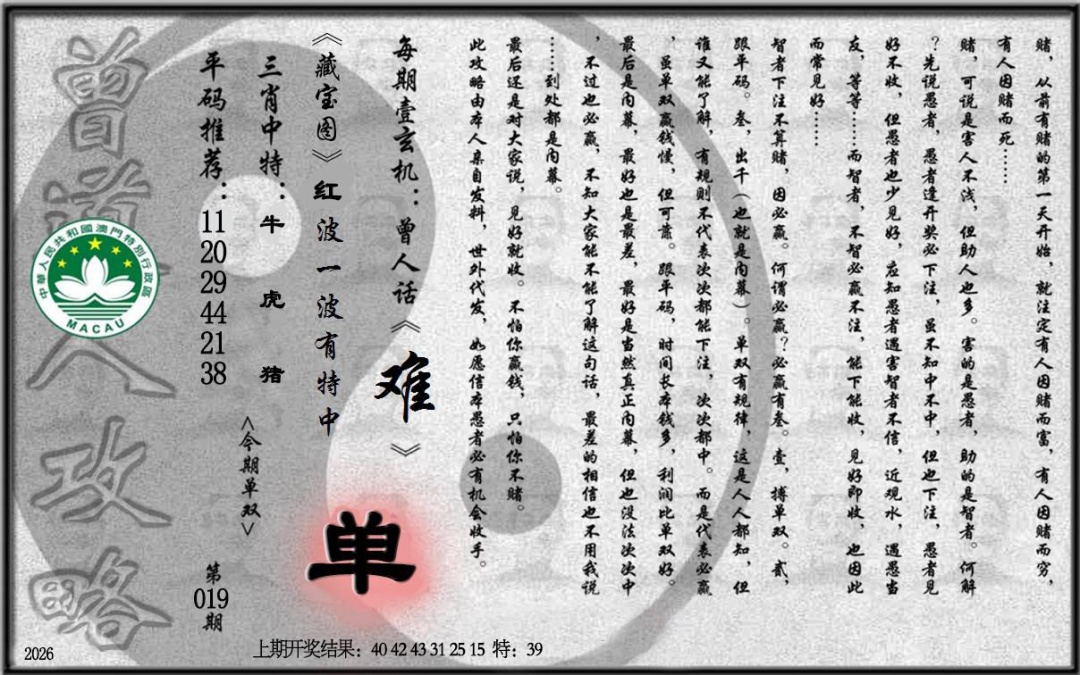 赌，从前有赌的第一天开始，就注定有人因赌而富，有人因赌而穷，
有人因赌而死……
赌，可说是害人不浅，但助人也多。害的是愚者，助的是智者。何解
？先说愚者，愚者逢开奖必下注，虽不知中不中，但也下注，愚者见
好不收，但愚者也少见好，应知愚者遇害智者不信，近观水，遇愚当
友，等等……而智者，不智必赢不注，能下能收，见好即收，也因此
而常见好……
智者下注不算赌，因必赢。何谓必赢？必赢有叁。壹，搏单双。贰，
跟平码。叁，出千（也就是内幕）。单双有规律，这是人人都知，但
谁又能了解，有规则不代表次次都能下注，次次都中。而是代表必赢
，虽单双赢钱慢，但可靠。跟平码，时间长本钱多，利润比单双好。
最后是内幕，最好也是最差，最好是当然真正内幕，但也没法次次中
，不过也必赢，不知大家能不能了解这句话，最差的相信也不用我说
……到处都是内幕。
最后还是对大家说，见好就收。不怕你赢钱，只怕你不赌。
此攻略由本人亲自发料，世外代发，如愿信本愚者必有机会收手。
每期壹玄机：曾人话《难》
《藏宝图》红波一波有特中
单
三肖中特：牛虎猪
<今期单双>
平码推荐：11 20 29 44 21 38
第019期
中華人民共和國澳門特別行政區
MACAU
曾道人攻略
2026
上期开奖结果：40 42 43 31 25 15 特：39